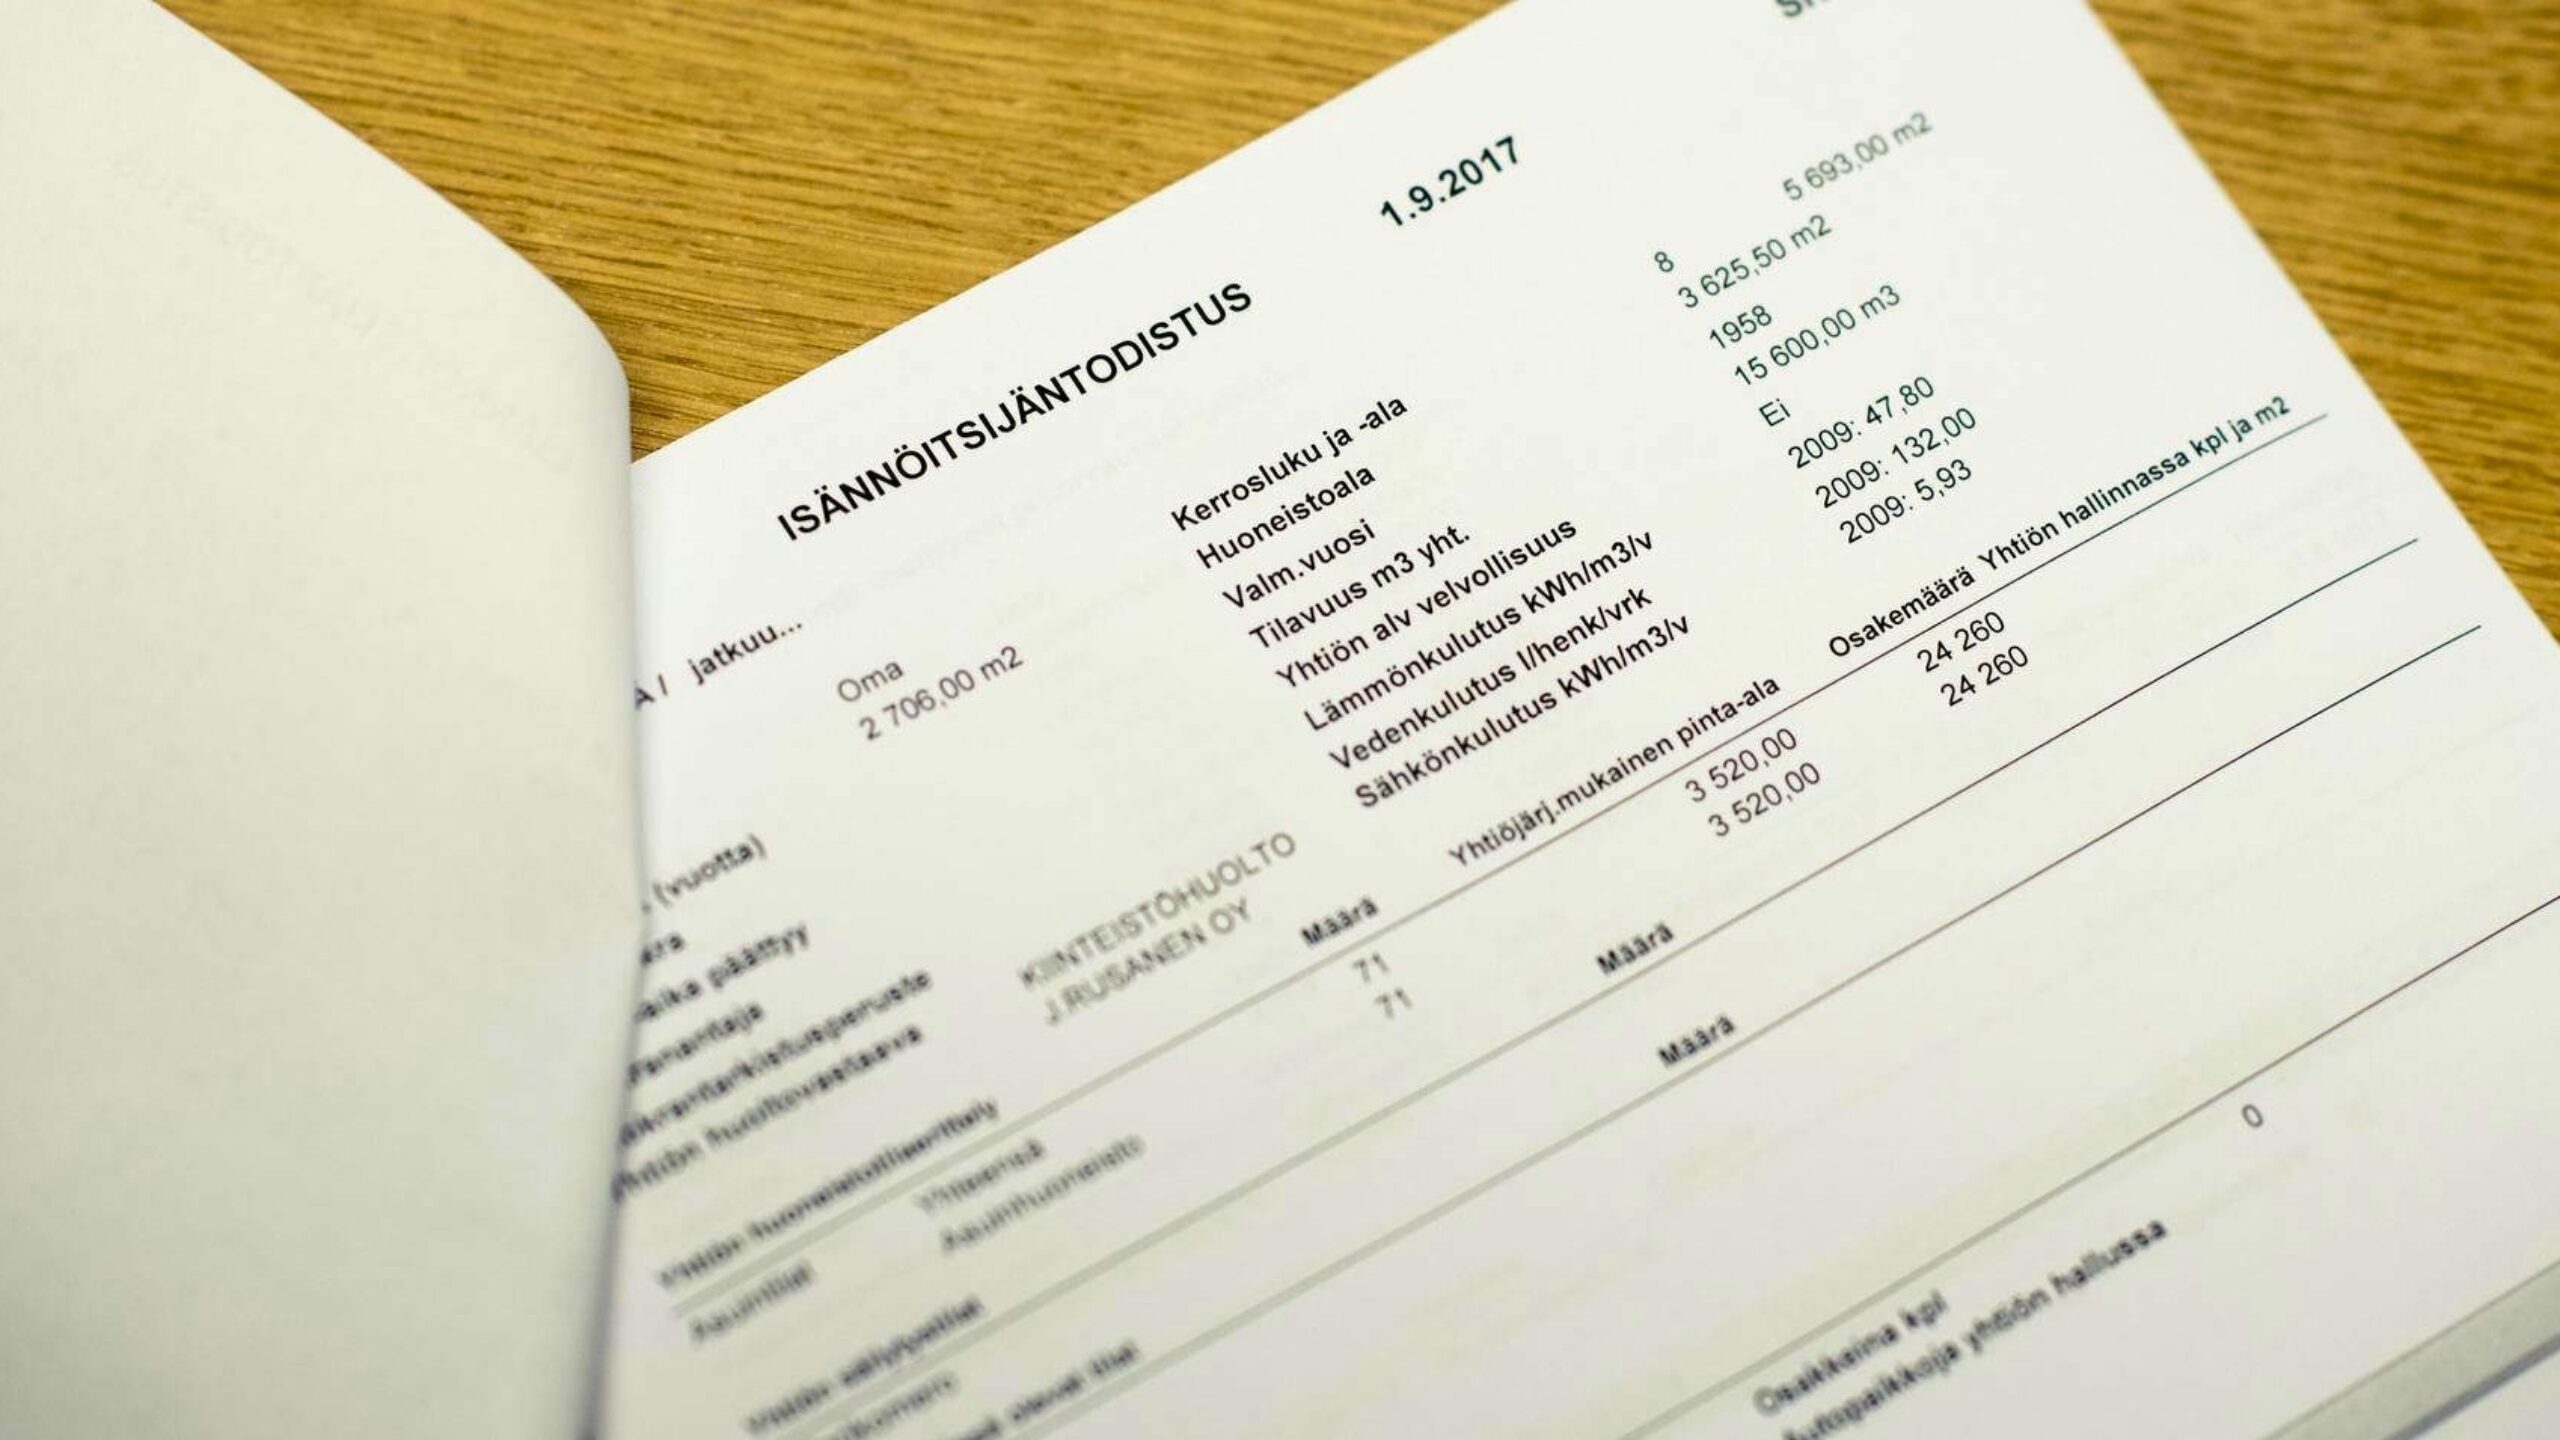 ISÄNNÖITSIJÄNTODISTUS 1.9.2017
jatkuu...
Oma
2 706,00 m2
Kerrosluku ja -ala 8 5 693,00 m2
Huoneistoala 3 625,50 m2
Valm.vuosi 1958
Tilavuus m3 yht. 15 600,00 m3
Yhtiön alv velvollisuus Ei
Lämmönkulutus kWh/m3/v 2009: 47,80
Vedenkulutus l/henk/vrk 2009: 132,00
Sähkönkulutus kWh/m3/v 2009: 5,93
(vuotta)
päättyy
KIINTEISTÖHUOLTO
J.RUSANEN OY
Määrä Yhtiöjärj.mukainen pinta-ala Osakemäärä Yhtiön hallinnassa kpl ja m2
Yhteensä 71 3 520,00 24 260
Asuinhuoneisto 71 3 520,00 24 260
Määrä
Määrä
Osakkeina kpl 0
yhtiön hallussa